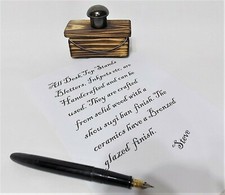 All Desk Top Stands
Blotters, Inkpots etc. are
Handcrafted and can be
used. They are crafted
from solid wood with a
shou sugi ban finish. The
ceramics have a Bronzed
glazed finish.
Steve